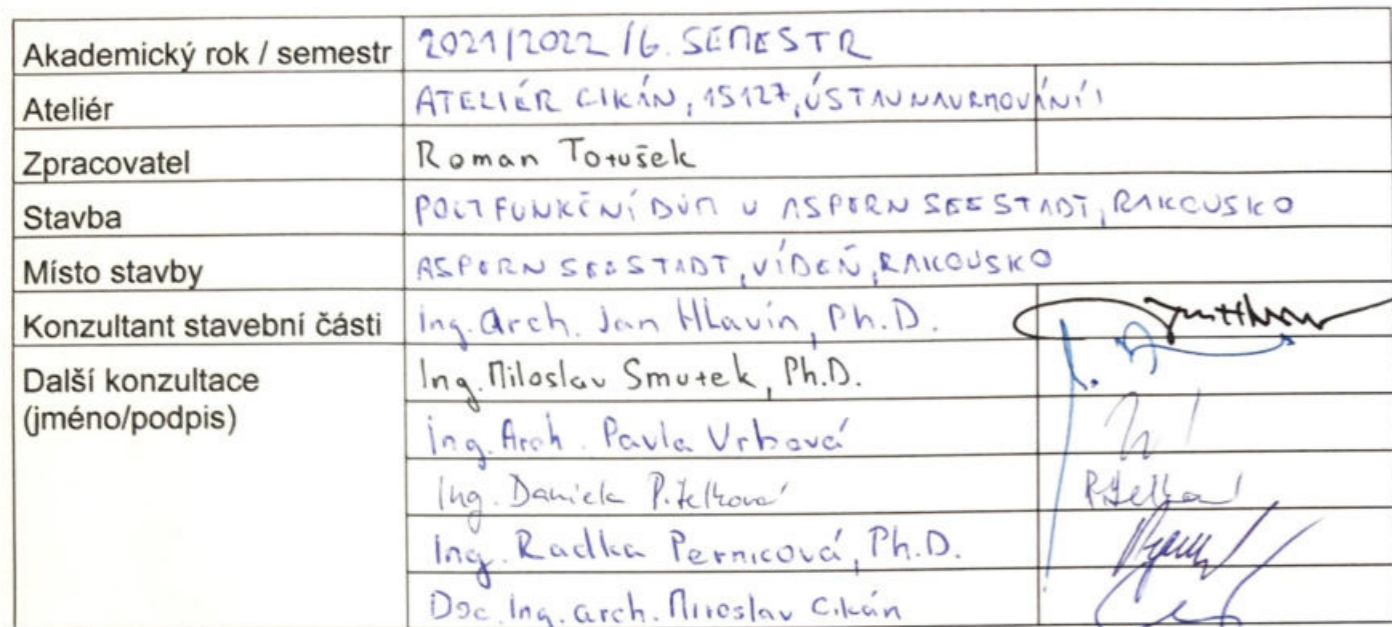 Akademický rok / semestr 2021/2022 /6. SEMESTR
Ateliér ATELIÉR CIKÁN, 15127, ÚSTAV NAVRHOVÁNÍ I
Zpracovatel Roman Totušek
Stavba POLYFUNKČNÍ DŮM V ASPERN SEESTADT, RAKOUSKO
Místo stavby ASPERN SEESTADT, VÍDEŇ, RAKOUSKO
Konzultant stavební části Ing. arch. Jan Hlavín, Ph.D.
Další konzultace Ing. Miloslav Smutek, Ph.D.
(jméno/podpis)
Ing. Arch. Pavla Vrbová
Ing. Daniela
Ing. Radka Pernicová, Ph.D.
Doc. Ing. arch. Miroslav Cikán